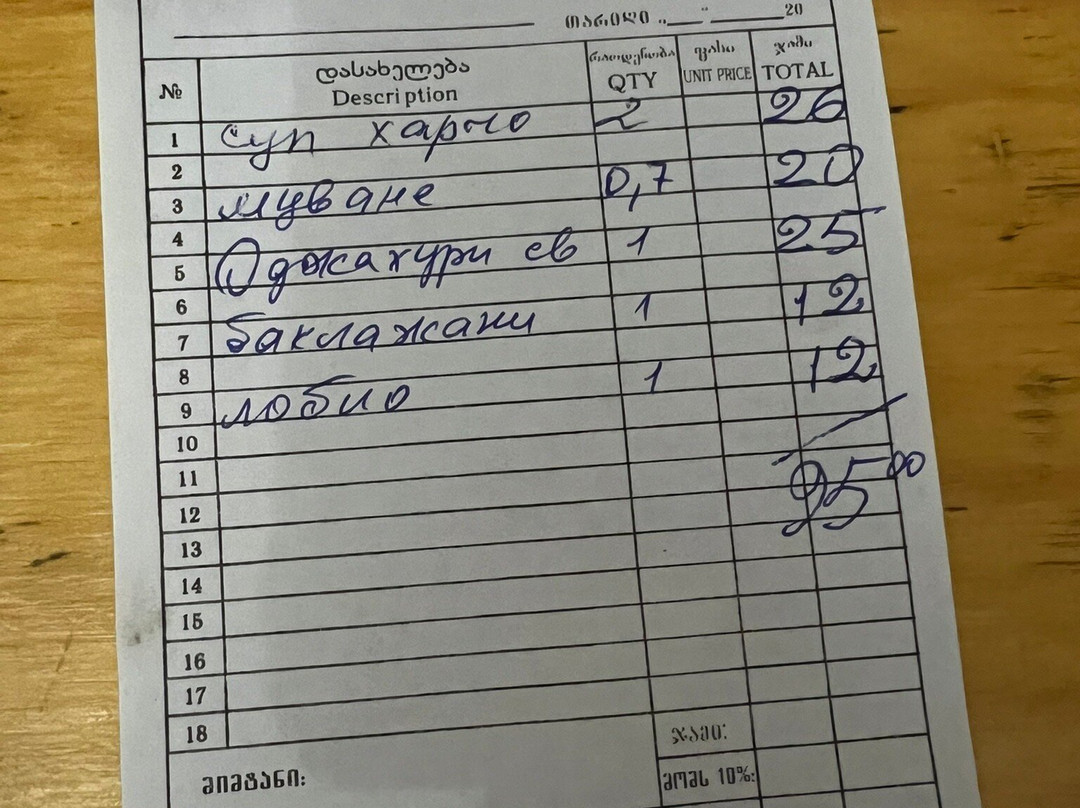 თარიღი „___“ ________20
№ დასახელება Description რაოდენობა QTY ფასი UNIT PRICE ჯამი TOTAL
1 суп харчо 2 26
2
3 мцване 0,7 20
4
5 Оджахури св 1 25
6
7 баклажани 1 12
8
9 лобио 1 12
10
11
12 95 00
13
14
15
16
17
18
ჯამი:
მიმტანი: მომს 10%: